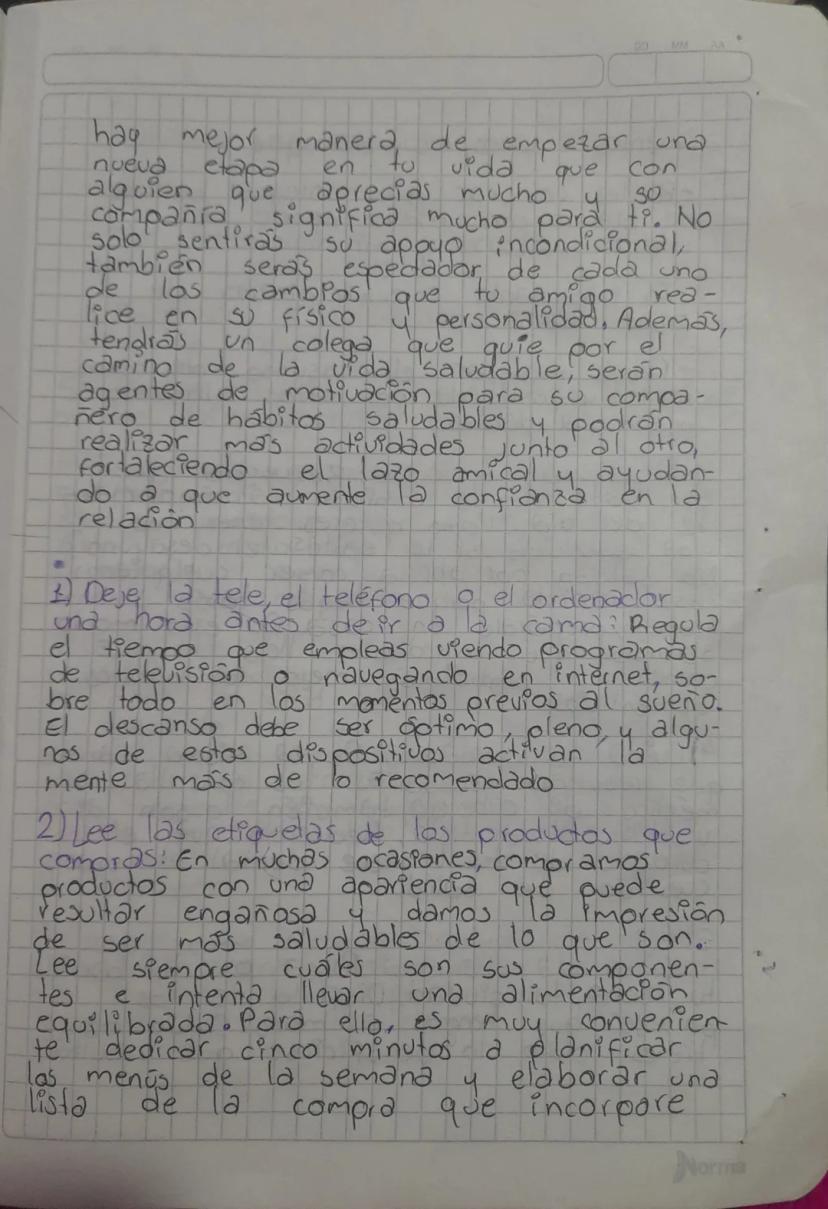 DD MM AA
hay mejor manera de empezar una
nueva etapa en tu vida que con
alguien que aprecias mucho y so
compañía significa mucho para ti. No
solo sentirás su apoyo incondicional,
también serás espedador de cada uno
de los cambios que tu amigo rea-
lice en su físico y personalidad. Además,
tendrás un colega que guie por el
camino de la vida saludable, serán
agentes de motivación para su compa-
ñero de hábitos saludables y podrán
realizar más actividades junto al otro,
fortaleciendo el lazo amical y ayudan-
do a que aumente la confianza en la
relación
1) Deje la tele, el teléfono o el ordenador
una hora antes de ir a la cama: Regula
el tiempo que empleas viendo programas
de televisión o navegando en internet, so-
bre todo en los momentos previos al sueño.
El descanso debe ser óptimo, pleno, y algu-
nos de estos dispositivos activan la
mente más de lo recomendado
2) Lee las etiquetas de los productos que
compras: En muchas ocasiones, compramos
productos con una apariencia que puede
resultar engañosa y damos la impresión
de ser más saludables de lo que son.
Lee siempre cuáles son sus componen-
tes e intenta llevar una alimentación
equilibrada. Para ello, es muy convenien-
te dedicar cinco minutos a planificar
los menús de la semana y elaborar una
lista de la compra que incorpore
Norma